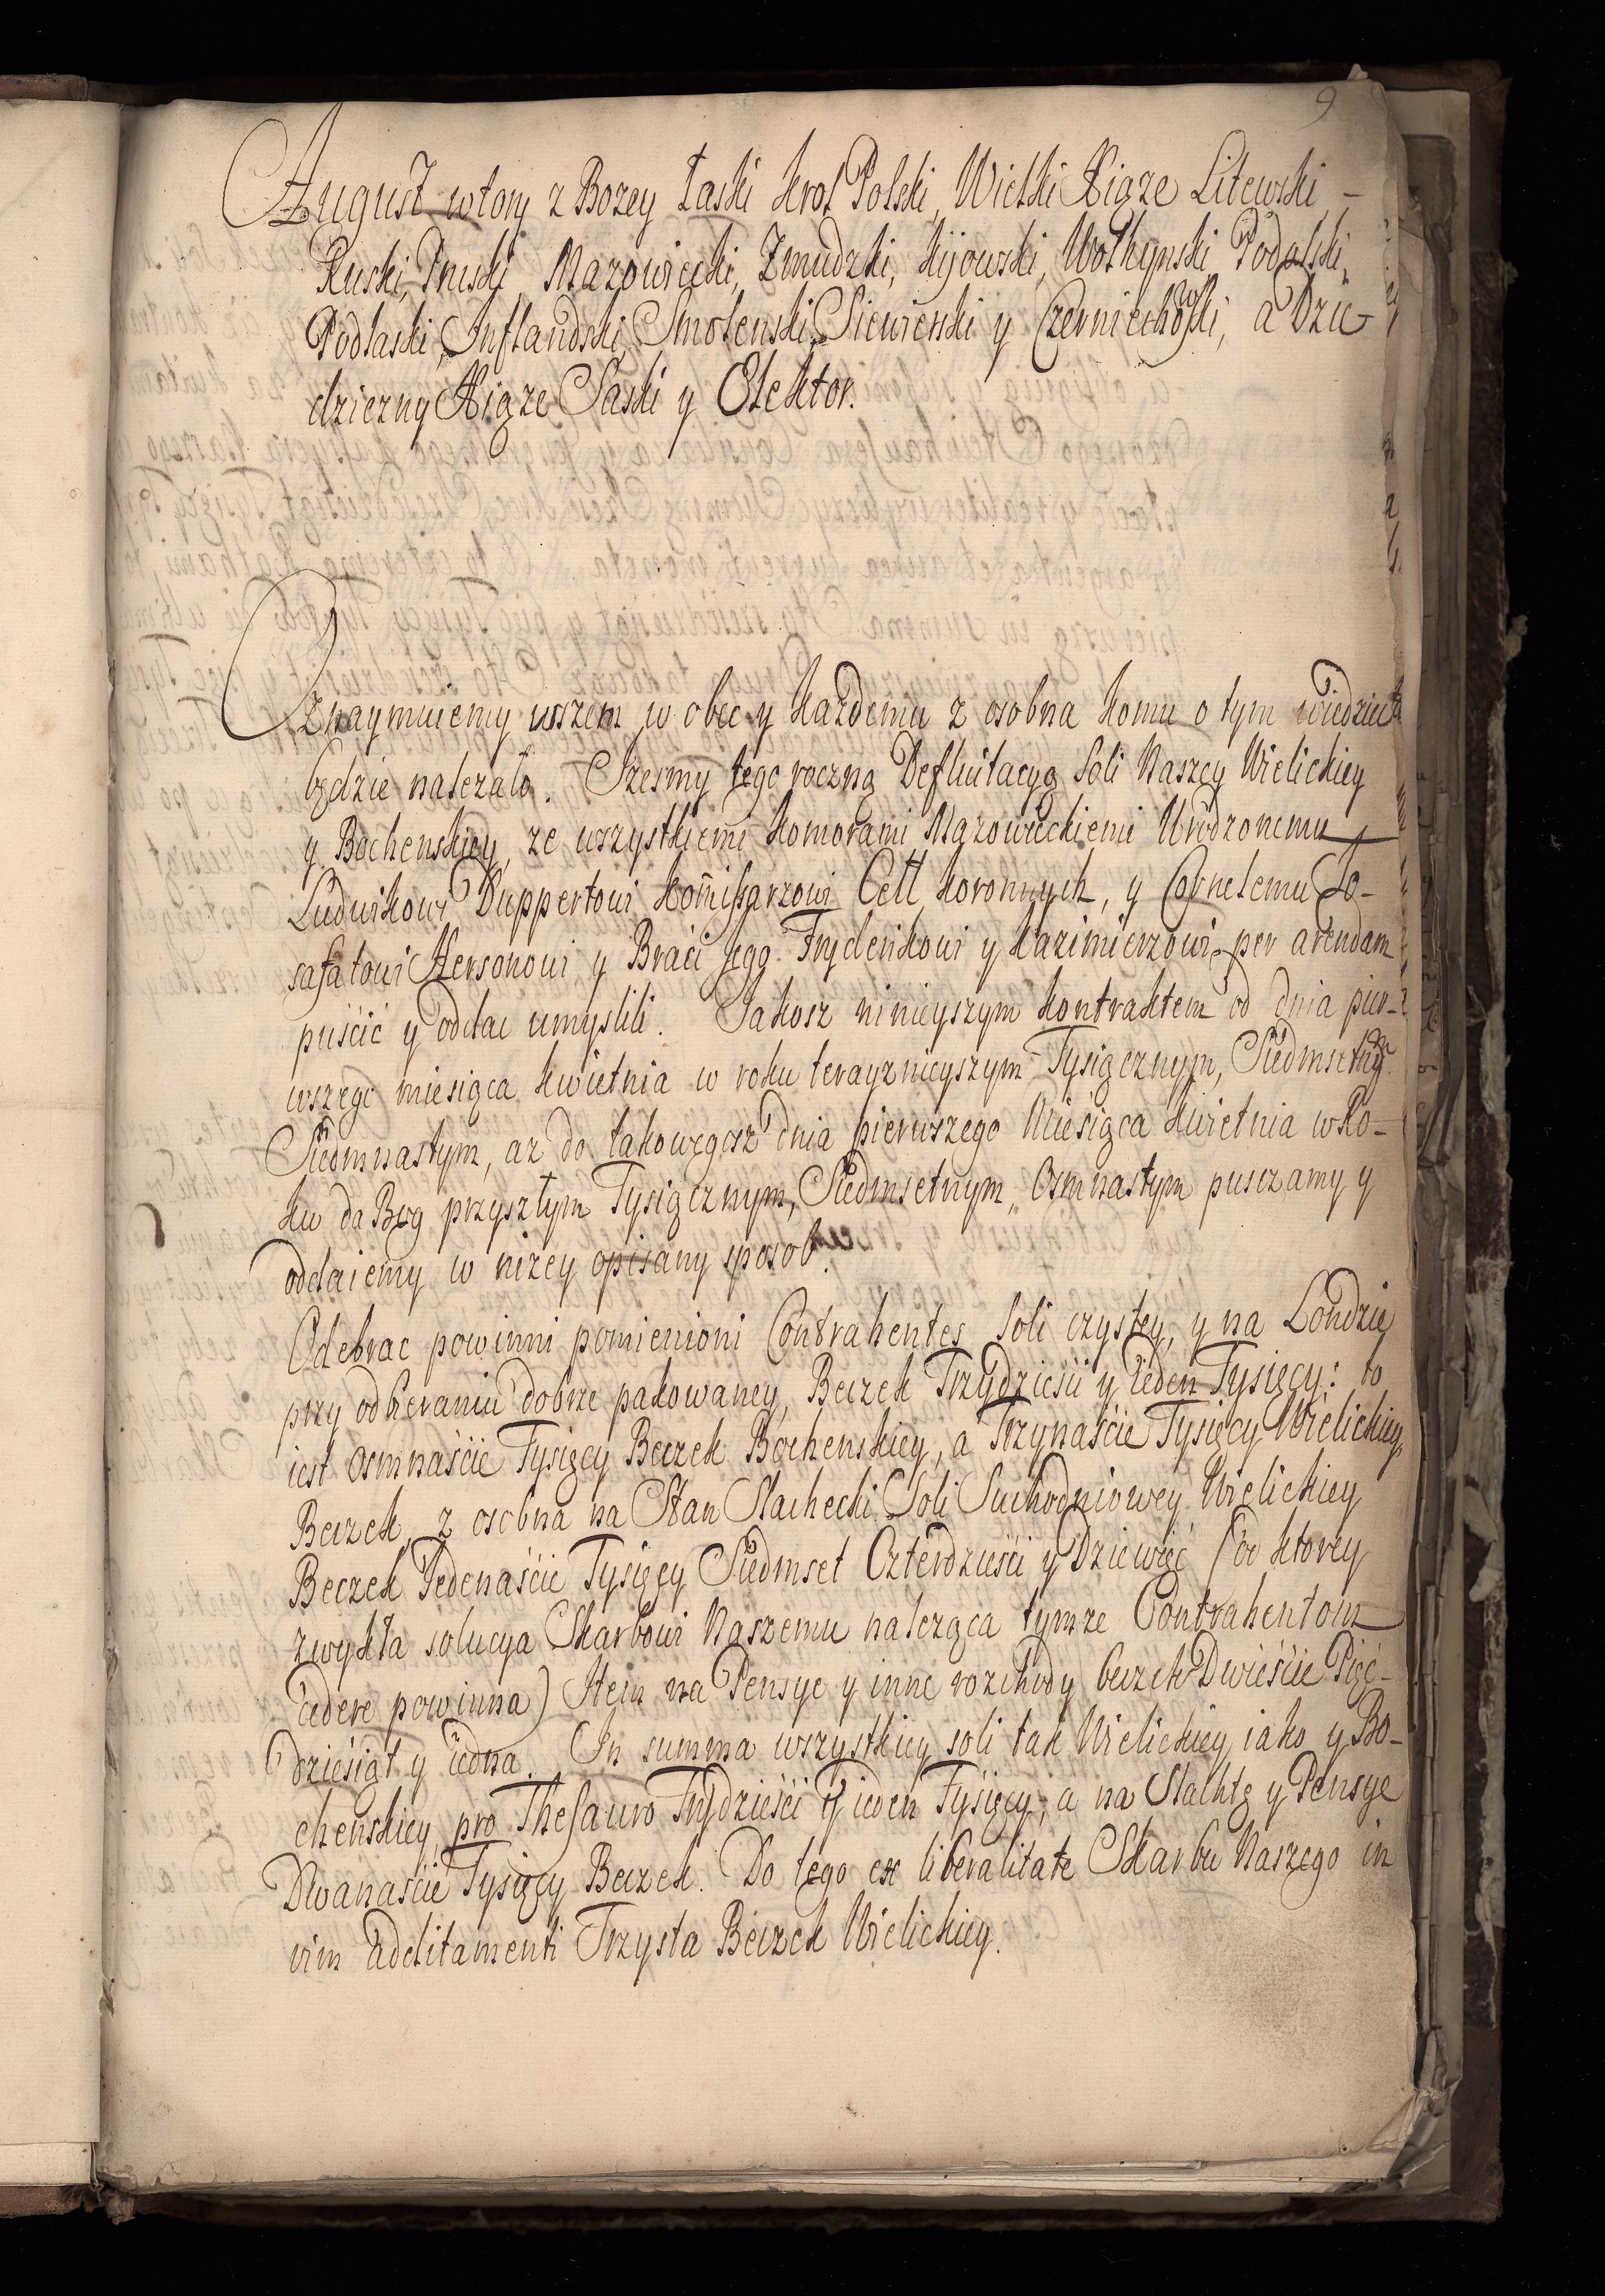 9
August wtory z Bozey Łaski Krol Polski, Wielki Xiąze Litewski -
Ruski, Pruski, Mazowiecki, Zmudzki, Kijowski, Wołhynski, Podolski,
Podlaski, Inflandski, Smolenski, Siewierski y Czerniechowski, a Dzie-
dziczny Xiąze Saski y Elektor.
Oznaymuiemy wszem w obec y kazdemu z osobna komu o tym wiedziec
będzie nalezało. Izesmy tego roczną Defluitacyą Soli Naszey Wielickiey
y Bochenskiey, ze wszystkiemi Komorami Mazowieckiemi Urodzonemu
Ludwikowi Duppertowi Kom̃issarzowi Cell Koronnych, y Cornelemu Jo-
safatowi Hersonowi y Braci Jego Fryderikowi y Kazimierzowi per arendam
puścić y oddac umyslili. Jakosz ninieyszym kontraktem od dnia pier-
wszego miesiąca kwietnia w roku teraznieyszym Tysiącznym, Siedmsetnym
Siedmnastym, az do takowegosz dnia pierwszego Miesiąca kwietnia w Ro-
ku da Bog przyszłym Tysiącznym, Siedmsetnym, Osmnastym puszczamy y
oddaiemy w nizey opisany sposob.
Odebrac powinni pomienioni Contrahentes Soli czystey, y na Londzie
przy odbieraniu dobrze pakowaney, Beczek Trzydzieści y ieden Tysięcy: to
iest osmnaście Tysięcy Beczek Bochenskiey, a Trzynaście Tysięcy Wielickiey
Beczek, z osobna na Stan Slachecki Soli Suchedniowey Wielickiey
Beczek Jedenaście Tysięcy Siedmset Czterdzieści y Dziewięć (od ktorey
zwykła solucya Skarbowi Naszemu naleząca tymze Contrahentom
cedere powinna) Item na Pensye y inne rozchody beczek Dwieście Pięć-
dziesiąt y iedna. In summa wszystkiey soli tak Wielickiey, iako y Bo-
chenskiey, pro Thesauro Trzydzieści y ieden Tysięcy, a na Slachtę y Pensye
Dwanaście Tysięcy Beczek. Do tego ex liberalitate Skarbu Naszego in
vim additamenti Trzysta Beczek Wielickiey.